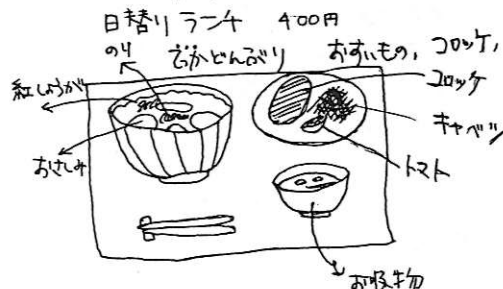 日替り ランチ 400円
でかどんぶり おすいもの, コロッケ,
のり
紅しょうが
おさしみ
コロッケ
キャベツ
トマト
お吸物